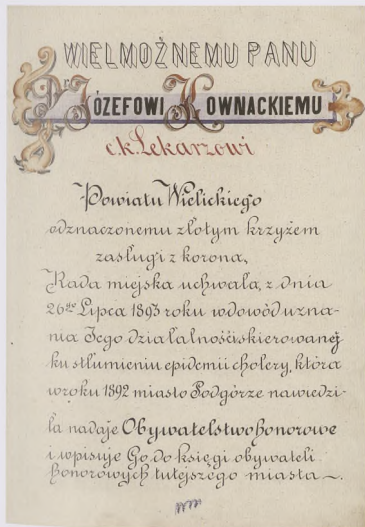 WIELMOŻNEMU PANU
Dr JÓZEFOWI KOWNACKIEMU
c.k. Lekarzowi
Powiatu Wielickiego
odznaczonemu złotym krzyżem
zasługi z korona,
Rada miejska uchwałą, z dnia
26go Lipca 1893 roku w dowód uzna-
nia Jego działalności skierowanej
ku stłumieniu epidemii cholery, która
w roku 1892 miasto Podgórze nawiedzi-
ła nadaje Obywatelstwo honorowe
i wpisuje Go do księgi obywateli
honorowych tutejszego miasta